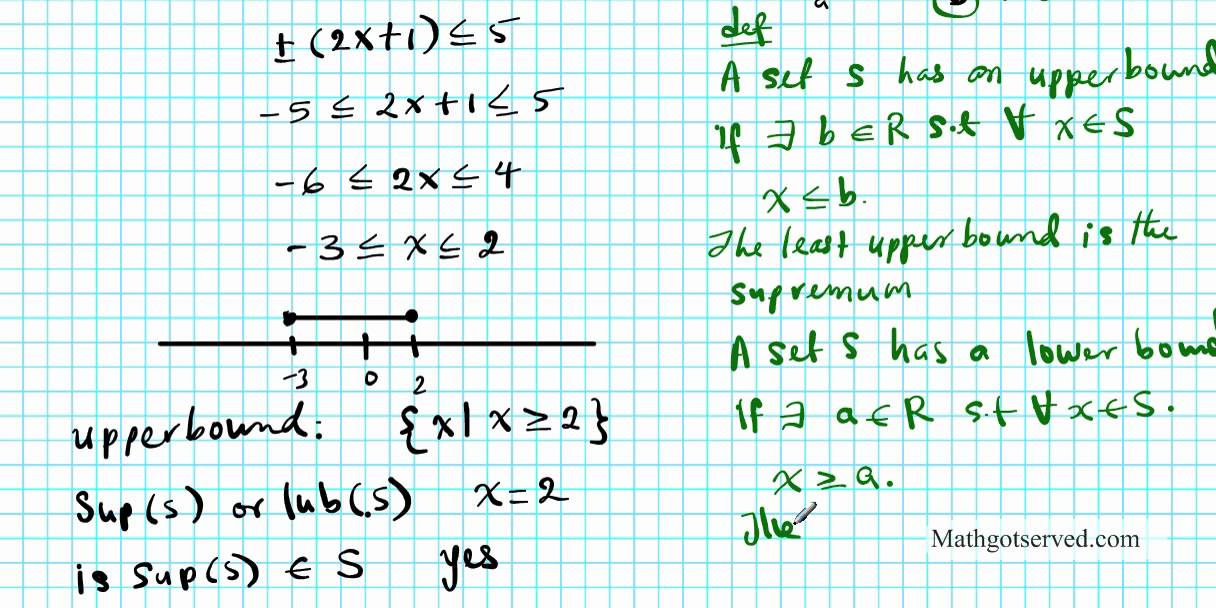 ± (2x+1) ≤ 5
-5 ≤ 2x+1 ≤ 5
-6 ≤ 2x ≤ 4
-3 ≤ x ≤ 2
-3 0 2
upperbound: {x| x ≥ 2}
Sup(s) or lub(s) x=2
is sup(s) ∈ S yes
a
def
A set S has an upperbound
If ∃ b ∈ R s.t ∀ x ∈ S
x ≤ b.
The least upperbound is the
supremum
A set S has a lower boun
If ∃ a ∈ R s.t ∀ x ∈ S.
x ≥ a.
The
Mathgotserved.com